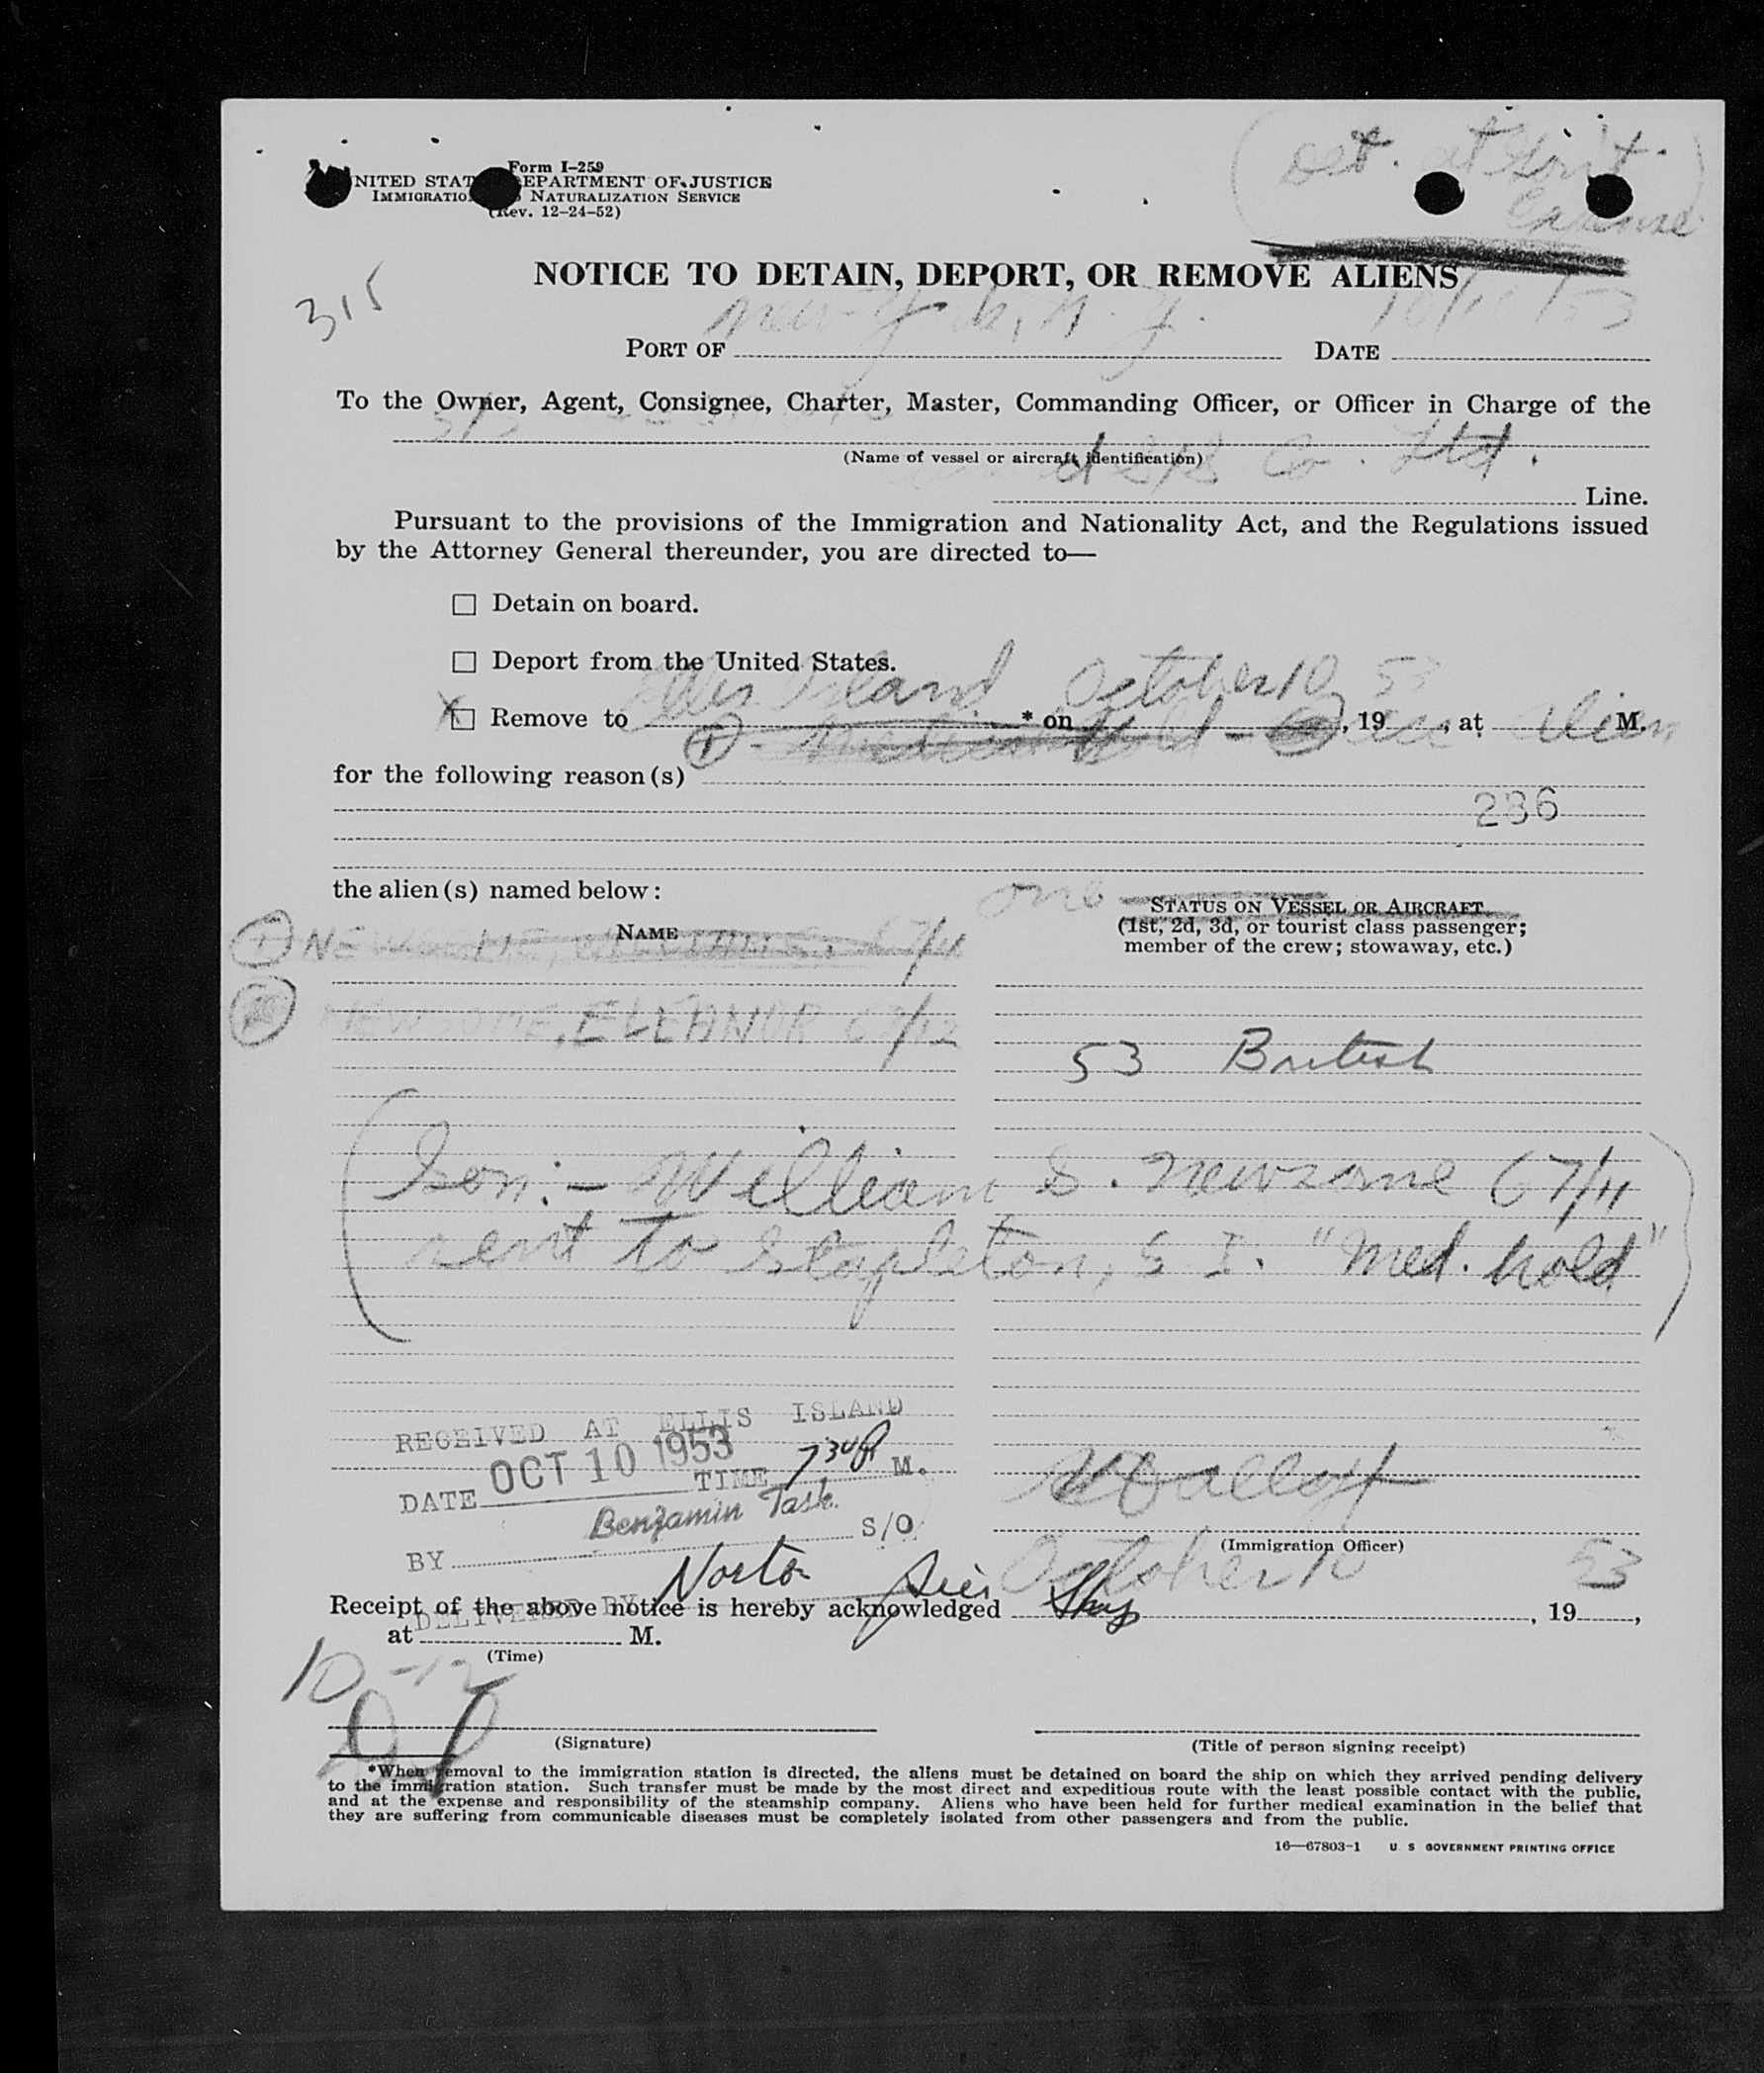 Form I-259
NITED STAT EPARTMENT OF JUSTICE
IMMIGRATIO NATURALIZATION SERVICE
(Rev. 12-24-52)
Det. at Gov't.
Expense
NOTICE TO DETAIN, DEPORT, OR REMOVE ALIENS
315
New York, N. Y.
PORT OF DATE
To the Owner, Agent, Consignee, Charter, Master, Commanding Officer, or Officer in Charge of the
(Name of vessel or aircraft identification)
S/S Co. Ltd.
Line.
Pursuant to the provisions of the Immigration and Nationality Act, and the Regulations issued
by the Attorney General thereunder, you are directed to—
Detain on board.
Deport from the United States.
Ellis Island October 10 53
X Remove to * on , 19 , at M.
Alien
for the following reason(s)
236
the alien(s) named below:
one
STATUS ON VESSEL OR AIRCRAFT
NAME
(1st, 2d, 3d, or tourist class passenger;
member of the crew; stowaway, etc.)
67/11
NEWSOME, ELEANOR 67/12
53 British
(Son:- William S. Newsome 67/11
sent to Stapleton, S I. "Med. hold")
RECEIVED AT ELLIS ISLAND
DATE OCT 10 1953 TIME 7 30 P M.
BY Benjamin Task S/O
(Immigration Officer)
DELIVERED BY Norton
October 10 53
Receipt of the above notice is hereby acknowledged , 19 ,
at M.
(Time)
10-12
(Signature)
(Title of person signing receipt)
*When removal to the immigration station is directed, the aliens must be detained on board the ship on which they arrived pending delivery
to the immigration station. Such transfer must be made by the most direct and expeditious route with the least possible contact with the public,
and at the expense and responsibility of the steamship company. Aliens who have been held for further medical examination in the belief that
they are suffering from communicable diseases must be completely isolated from other passengers and from the public.
16—67803-1 U S GOVERNMENT PRINTING OFFICE